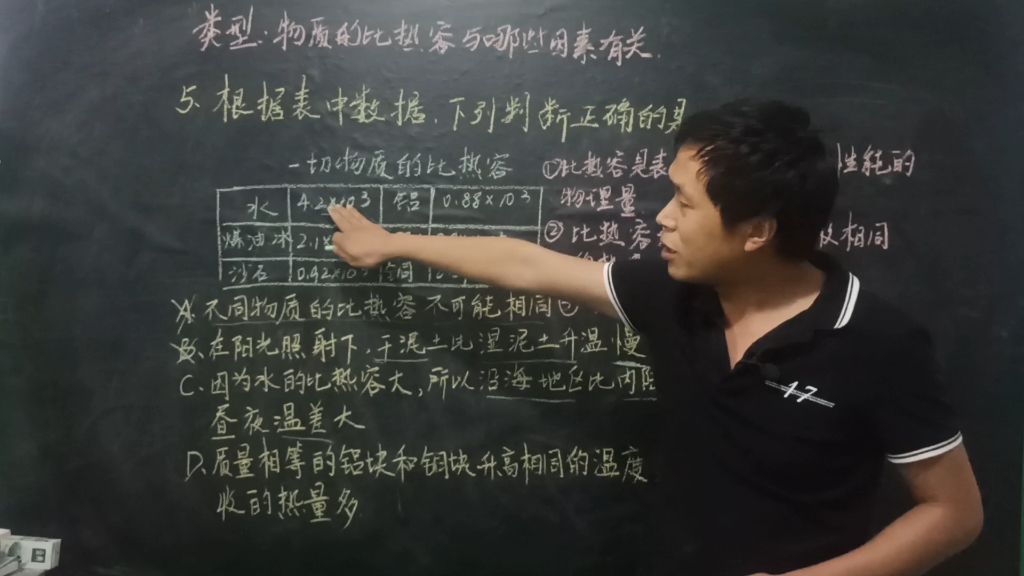 类型:物质的比热容与哪些因素有关
5、根据表中数据,下列判断正确的是
一切物质的比热容
水 4.2×10³ 铝 0.88×10³
煤油冰 2.1
沙石 0.92×10
①比热容是表 性能的
物理量
②比热容 相同
A.不同物质的比热容不可能相同
B.在阳光照射下,干泥土比湿泥土升温慢
C.因为水的比热容大,所以沿海地区比内陆
昼夜温差大
D.质量相等的铝块和铜块升高相同的温度
收的热量多
17